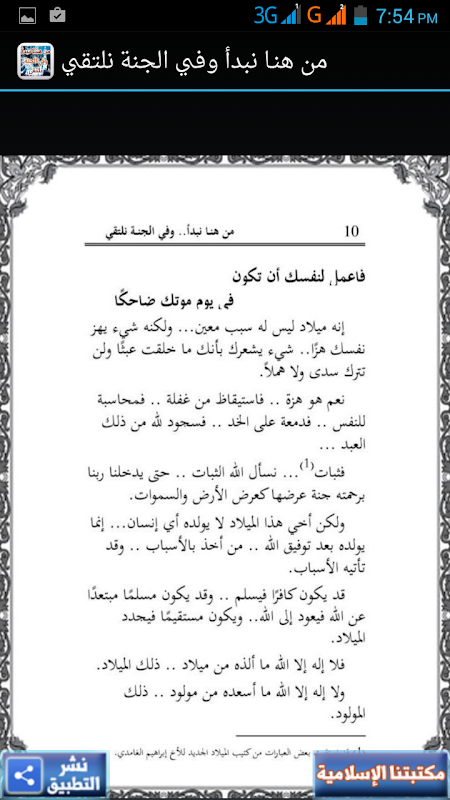 3G G 7:54 PM
من هنا نبدأ وفي الجنة نلتقي
10 من هنا نبدأ.. وفي الجنة نلتقي
فاعمل لنفسك أن تكون
في يوم موتك ضاحكًا
إنه ميلاد ليس له سبب معين... ولكنه شيء يهز
نفسك هزًا.. شيء يشعرك بأنك ما خلقت عبثًا ولن
تترك سدى ولا هملاً.
نعم هو هزة .. فاستيقاظ من غفلة .. فمحاسبة
للنفس .. فدمعة على الخد .. فسجود لله من ذلك
العبد ...
فثبات(1)... نسأل الله الثبات .. حتى يدخلنا ربنا
برحمته جنة عرضها كعرض الأرض والسموات.
ولكن أخي هذا الميلاد لا يولده أي إنسان... إنما
يولده بعد توفيق الله .. من أخذ بالأسباب .. وقد
تأتيه الأسباب.
قد يكون كافرًا فيسلم .. وقد يكون مسلمًا مبتعدًا
عن الله فيعود إلى الله.. ويكون مستقيمًا فيجدد
الميلاد.
فلا إله إلا الله ما ألذه من ميلاد .. ذلك الميلاد.
ولا إله إلا الله ما أسعده من مولود .. ذلك
المولود.
بعض العبارات من كتيب الميلاد الجديد للأخ إبراهيم الغامدي.
مكتبتنا الإسلامية
نشر
التطبيق